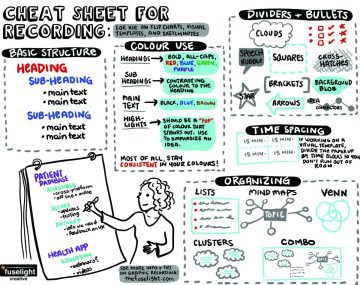 CHEAT SHEET FOR
RECORDING:
FOR USE ON FLIPCHARTS, VISUAL
TEMPLATES, AND SKETCHNOTES
BASIC STRUCTURE
HEADING
SUB-HEADING
• main text
• main text
SUB-HEADING
• main text
• main text
COLOUR USE
HEADINGS → BOLD, ALL-CAPS,
RED, BLUE, GREEN,
PURPLE
SUB-HEADINGS → CONTRASTING
COLOUR TO THE
HEADING
MAIN TEXT → BLACK, BLUE, BROWN
HIGH-LIGHTS → SHOULD BE A "POP"
OF COLOUR THAT
STANDS OUT. USE
TO EMPHASIZE AN
IDEA.
MOST OF ALL, STAY
CONSISTENT IN YOUR COLOURS!
DIVIDERS + BULLETS
CLOUDS
SPEECH BUBBLE
SQUARES
CROSS-HATCHES
BRACKETS
BACKGROUND BLOB
ARROWS
AREA CONNECTORS
TIME SPACING
15 MIN
15 MIN
15 MIN
15 MIN
IF WORKING ON A
VISUAL TEMPLATE,
DIVIDE THE PAPER UP
BY TIME BLOCKS SO YOU
DON'T RUN OUT OF
ROOM
ORGANIZING
LISTS
MIND MAPS
VENN
TOPIC
CLUSTERS
COMBO
PATIENT
DATABASE
HEALTH APP
EDUCATION
• webinars
• videos
FOR MORE INFO + TIPS
ON GRAPHIC RECORDING:
thefuselight.com
fuselight
creative